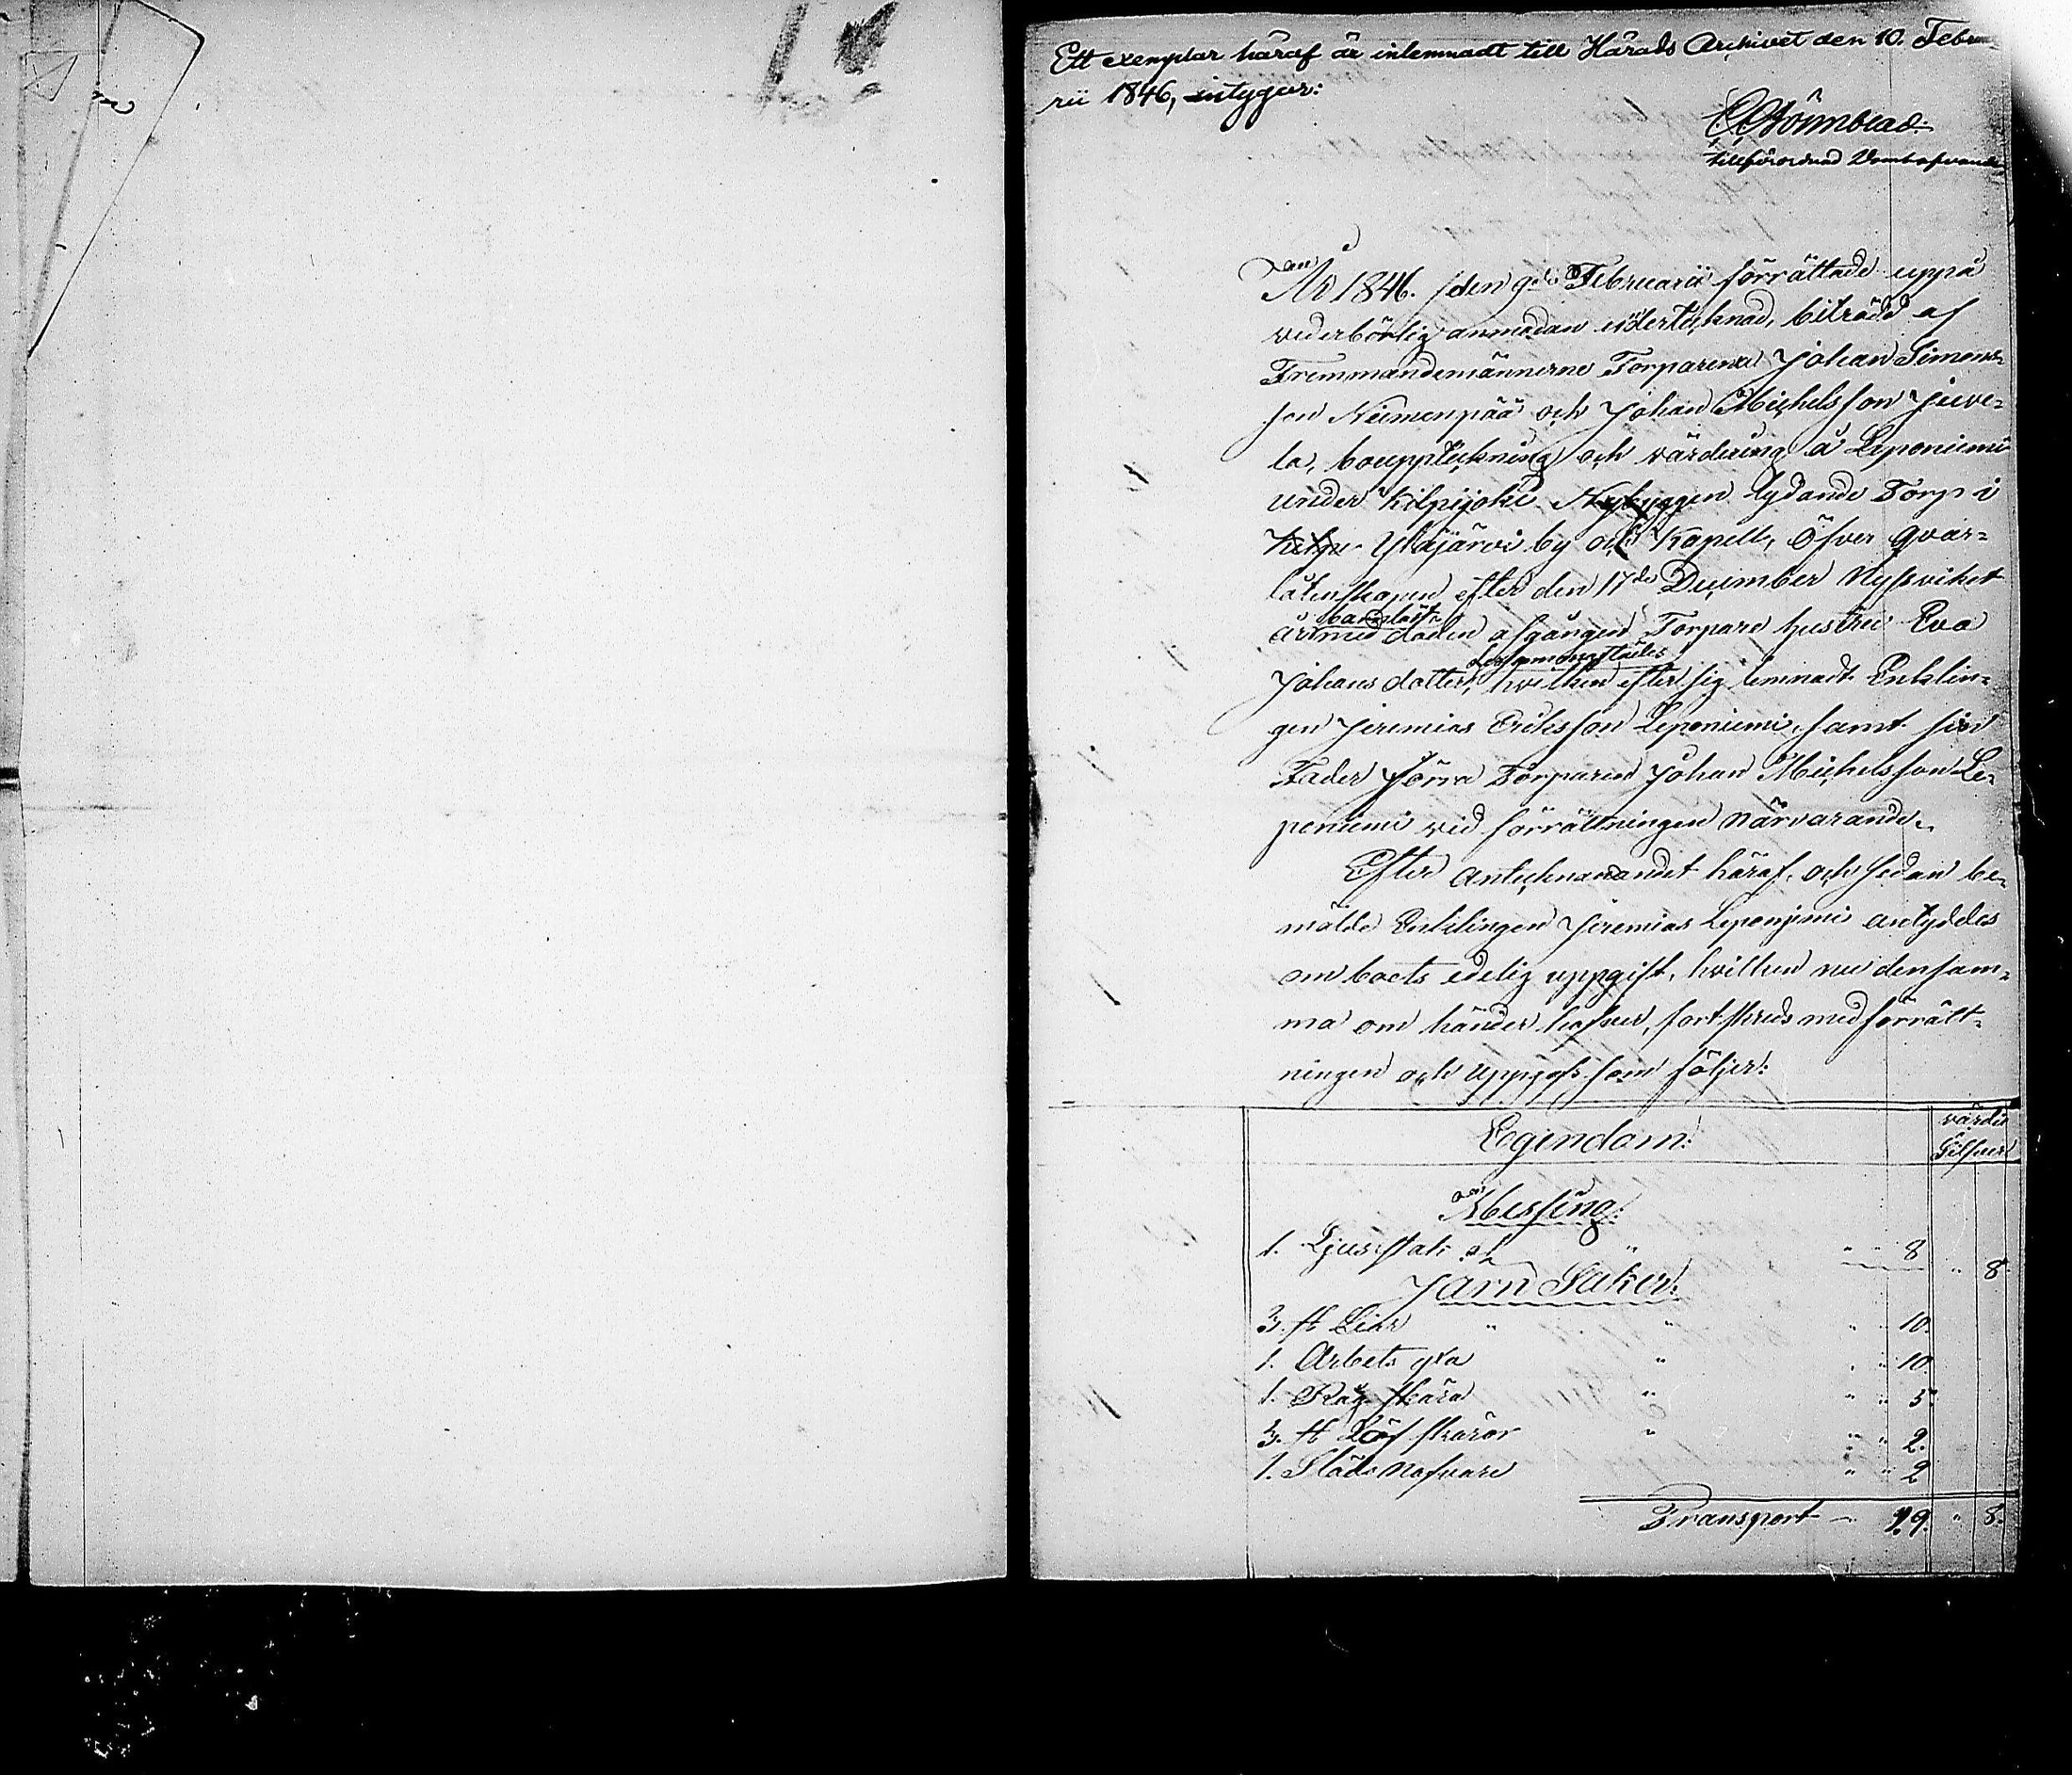 Ett exemplar häraf är inlemnadt till Härads Archivet den 10. Februa
rii 1846, intygar:
tillförordnad Domhafvande
År 1846. den 9de Februarii förrättade uppå
vederbörlig anmodan undertecknad, biträdd af
Fremmandemännerne Torparena Johan Simons-
son Niemenpää och Johan Michelsson Juve-
la, bouppteckning och värdering å Leponiemi
under Kilpijoki Nybyggen lydande Torp i
Ylijärvi by och Kapell, öfver qvar-
låtenskapen efter den 17de December nyssvikit
år med döden afgången barnlöst Torpare hustru Eva
Johans dotter, hvilken efter sig lemnadt Enklin-
gen Jeremias Eriksson Leponiemi, samt sin
Fader förra Torparen Johan Michelsson Le-
poniemi vid förrättningen närvarande.
Efter antecknandet häraf, och sedan be-
mälde Enklingen Jeremias Leponjemi antyddes
om boets edelig uppgift, hvilken nu densam-
ma om händer hafver, fortskreds med förrätt-
ningen och uppgafs som följer:
Egendom:
värde
Silfver
Messing:
1. Ljusstak " " " 8 " 8.
Järn Saker:
3. st Liar " " " " 10.
1. Arbets yxa " " " 10
1. Råg skära " " " 5
3. st Löf skäror " " " 2.
1. Släds nafvare " " 2
Transport - 29. " 8.